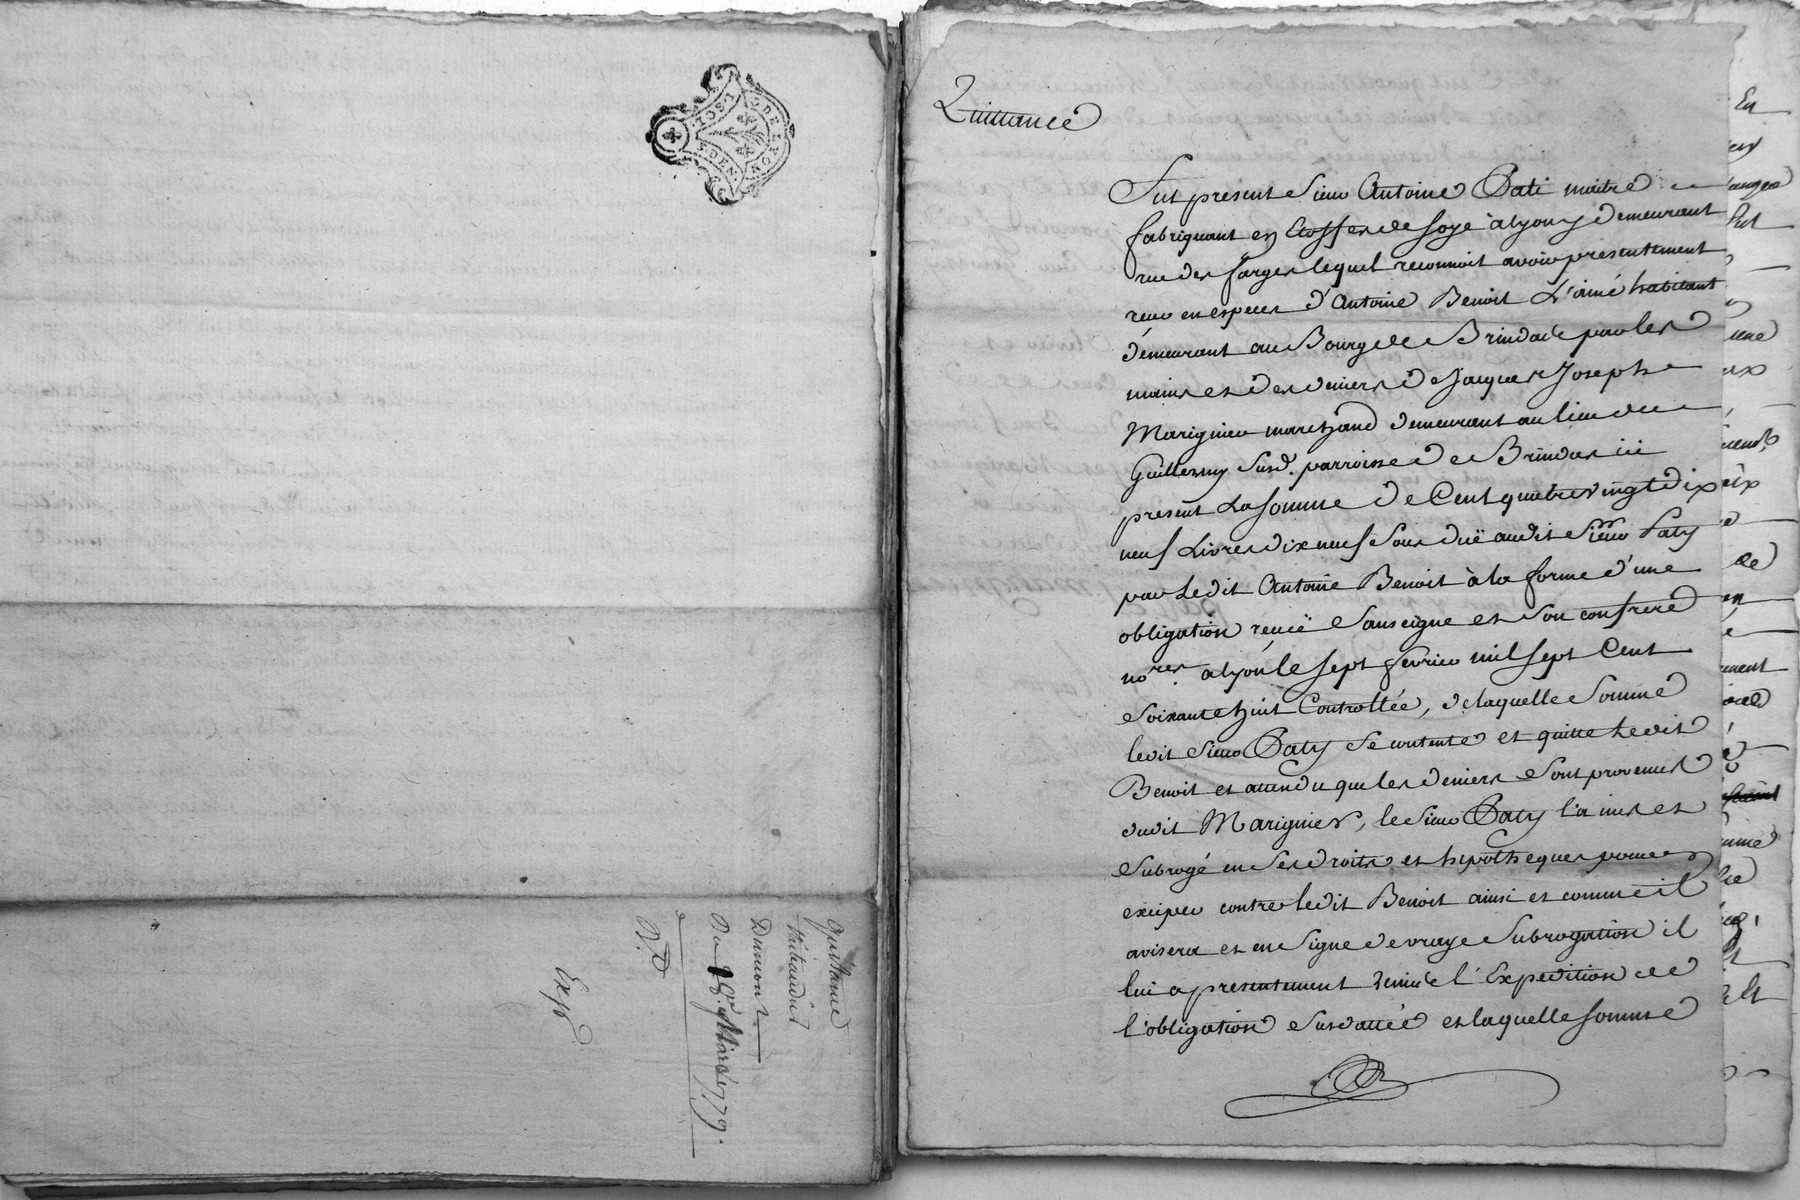 GEN. DE LYON
Quittance
Thibaudier
Dumont
Du 18e. Mars 1779.
B.D
Exp
Quittance
Fut present Sieur Antoine Pati maitre
fabriquant en Etoffes de soye à Lyon y demeurant
rue des farges lequel reconnoit avoir presentement
receu en especes d'Antoine Benoit L'ainé habitant
demeurant au Bourg de Brindas par les
mains et des deniers de Jacques Joseph
Marignier marchand demeurant au lieu de
Guillermy Susd. parroisse de Brindas ici
present La somme de Cent quatre vingt dix
neuf Livres dix neuf Sous duë audit Sieur Paty
par Ledit Antoine Benoit à la forme d'une
obligation reçuë Sauseigne et Son confrere
nores. a Lyon le sept fevrier mil sept Cent
Soixante huit Controllée, de laquelle Somme
ledit Sieur Paty se contente et quitte Ledit
Benoit et attendu que les deniers Sont provenus
dudit Marignier, le Sieur Paty l'a mis et
Subrogé en Ses droits et hipotheques pour en
exciper contre ledit Benoit ainsi et comme il
avisera et en Signe de vraye Subrogation il
lui a presentement remis l'Expedition de
l'obligation Susdattée et laquelle somme